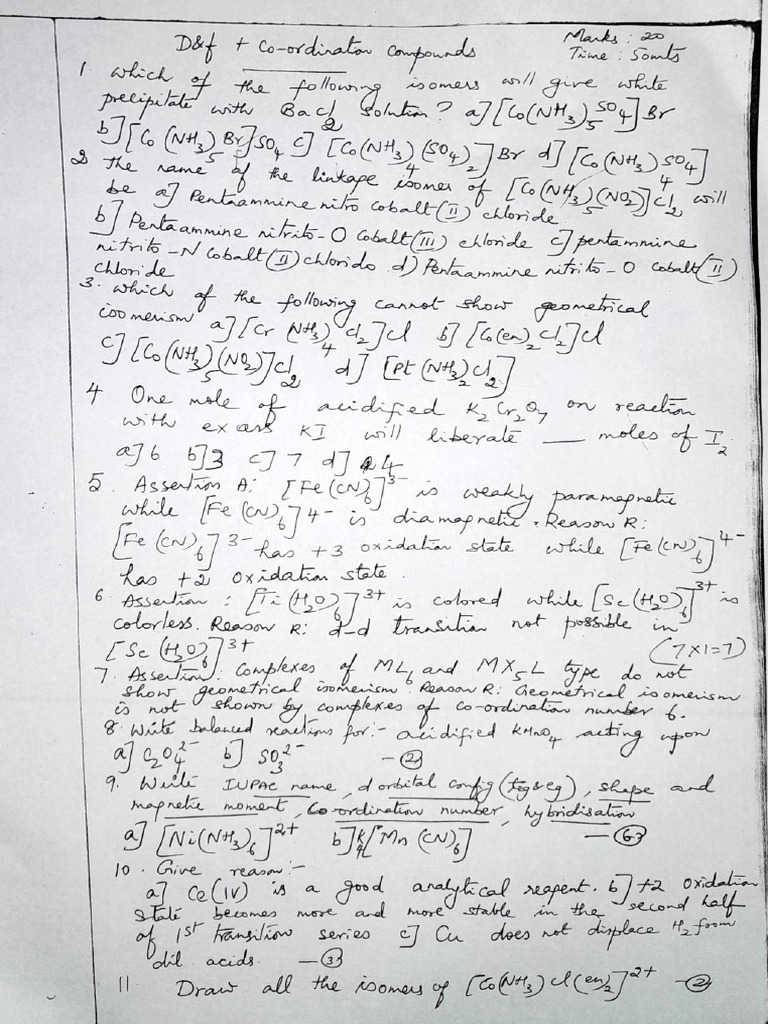 D&f + Co-ordination Compounds Marks: 20
Time: 50mts
1. Which of the following isomers will give white
precipitate with BaCl2 solution? a] [Co(NH3)5SO4]Br
b] [Co(NH3)5Br]SO4 c] [Co(NH3)4(SO4)2]Br d] [Co(NH3)4SO4]
2 The name of the linkage isomer of [Co(NH3)5(NO2)]Cl2 will
be a] Pentaammine nitro cobalt(II) chloride
b] Pentaammine nitrito-O Cobalt(III) chloride c] pentammine
nitrito-N Cobalt(II) chlorido d) Pentaammine nitrito-O cobalt(II)
chloride
3. Which of the following cannot show geometrical
isomerism a] [Cr(NH3)4Cl2]Cl b] [Co(en)2Cl2]Cl
c] [Co(NH3)5(NO2)]Cl2 d] [Pt(NH3)2Cl2]
4 One mole of acidified K2Cr2O7 on reaction
with excess KI will liberate ___ moles of I2
a] 6 b] 3 c] 7 d] 4
5. Assertion A: [Fe(CN)6]3- is weakly paramagnetic
while [Fe(CN)6]4- is diamagnetic. Reason R:
[Fe(CN)6]3- has +3 oxidation state while [Fe(CN)6]4-
has +2 oxidation state.
6. Assertion: [Ti(H2O)6]3+ is colored while [Sc(H2O)6]3+ is
colorless. Reason R: d-d transition not possible in
[Sc(H2O)6]3+ (7x1=7)
7. Assertion: Complexes of ML6 and MX5L type do not
show geometrical isomerism. Reason R: Geometrical isomerism
is not shown by complexes of co-ordination number 6.
8. Write balanced reactions for:- acidified KMnO4 acting upon
a] C2O4 2- b] SO3 2- - (2)
9. Write IUPAC name, d orbital config (t2g & eg), shape and
magnetic moment, Co-ordination number, hybridisation
a] [Ni(NH3)6]2+ b] K4[Mn(CN)6] - (6)
10. Give reason:-
a] Ce(IV) is a good analytical reagent. b] +2 oxidation
state becomes more and more stable in the second half
of 1st transition series c] Cu does not displace H2 from
dil acids. - (3)
11 Draw all the isomers of [Co(NH3)Cl(en)2]2+ - (2)